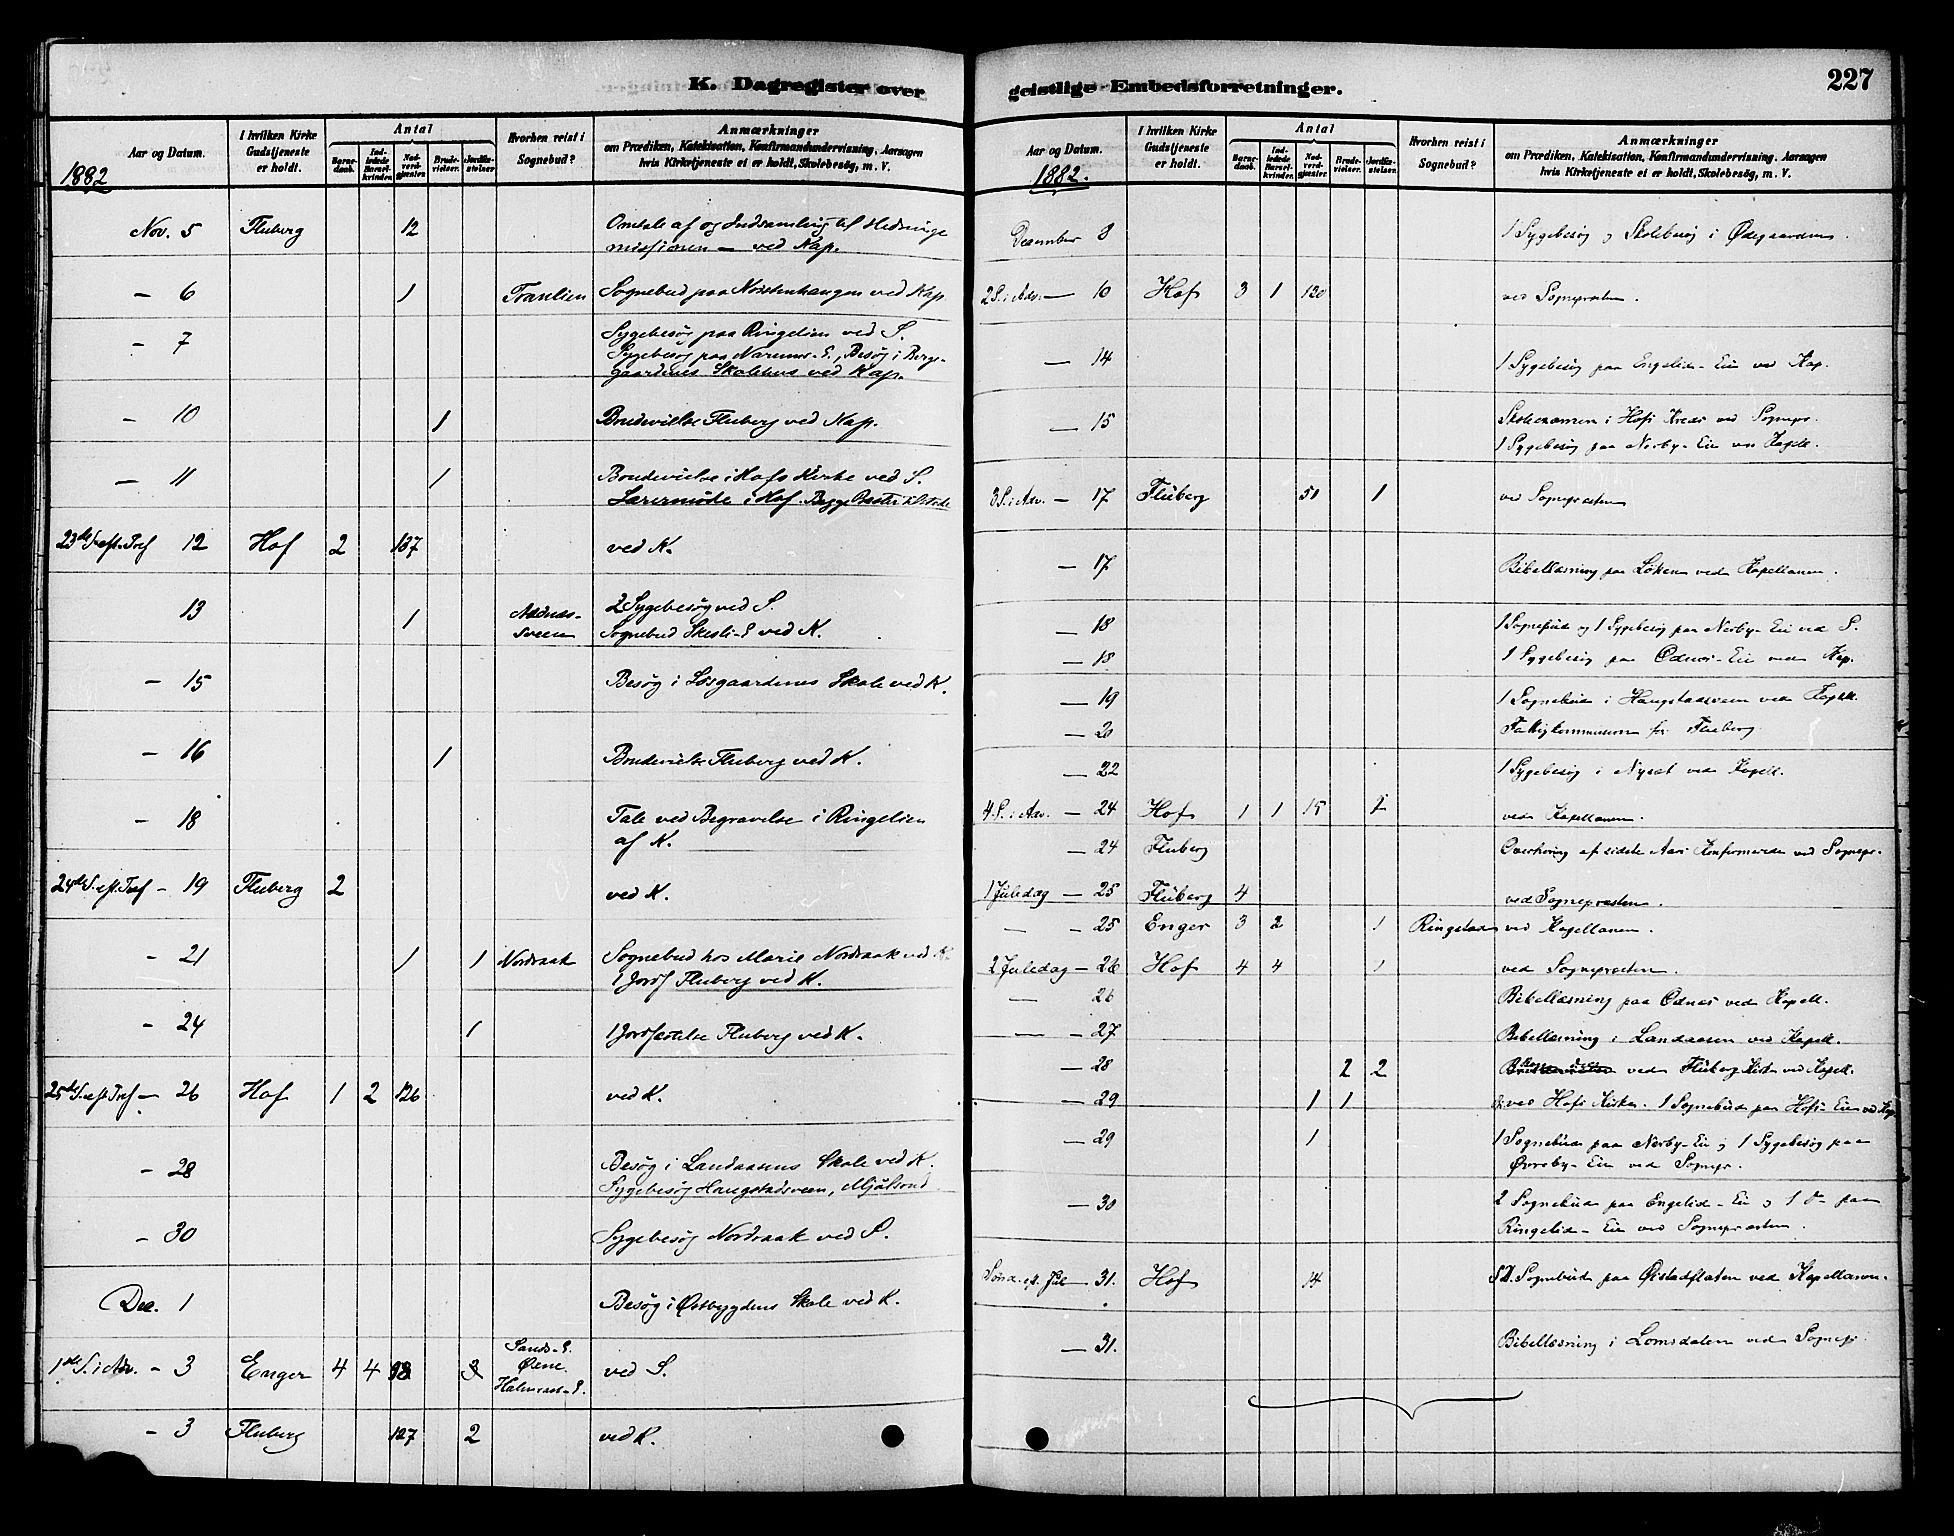 K. Dagregister over
Aar og Datum.
I hvilken Kirke Gudstjeneste er holdt.
Antal
Barnedaab.
Indledede Barselkvinder.
Nadverdgjæster.
Brudevielser.
Jordfæstelser
Hvorhen reist i Sognebud?
Anmærkninger
om Prædiken, Katekisation, Konfirmandundervisning, Aarsagen
hvis Kirketjeneste et er holdt, Skolebesøg, m. V.
1882
Nov. 5 Fluberg 12 Omtale af og Indsamling til Hedninge
missionen — ved Kap.
— 6 1 Tranlien Sognebud paa ved Kap
— 7 Sygebesøg paa Ringelien ved S.
Sygebesøg paa Narums-E., Besøg i Berge-
gaardenes Skolehus ved Kap.
— 10 1 Brudevielse Fluberg ved Kap.
— 11 1 Brudevielse i Hofs Kirke ved S.
Lærermøde i Hof.
23de S. eft. Tref 12 Hof 2 137 ved K.
13 1 sveen 2 Sygebesøg ved S.
Sognebud ved K.
— 15 Besøg i Skole ved K.
— 16 1 Brudevielse Fluberg ved K.
— 18 Tale ved Begravelse i Ringelien
af K.
24de S. eft. Tref — 19 Fluberg 2 ved K.
— 21 1 1 Nordraak Sognebud hos Marie Nordraak ved K.
1 Jordf Fluberg ved K.
— 24 1 1 Jordfæstelse Fluberg ved K.
25de S. eft Tref — 26 Hof 1 2 126 ved K.
— 28 Besøg i Landaasens Skole ved K.
Sygebesøg Haugstadsveen,
— 30 Sygebesøg Nordraak ved S.
Dec. 1 Besøg i Østbygdens Skole ved K.
1ste S. i Adv. — 3 Enger 4 4 98 3 Sands-E.
Øene. ved S.
— 3 Fluberg 127 2 ved K.
geistlige Embedsforretninger.
227
Aar og Datum.
I hvilken Kirke Gudstjeneste er holdt.
Antal
Barnedaab.
Indledede Barselkvinder.
Nadverdgjæster.
Brudevielser.
Jordfæstelser.
Hvorhen reist i Sognebud?
Anmærkninger
om Prædiken, Katekisation, Konfirmandundervisning. Aarsagen
hvis Kirketjeneste et er holdt, Skolebesøg, m. V.
1882.
December 8 1 Sygebesøg og Skolebesøg i Ødegaarden
2 S. i Adv. — 10 Hof 3 1 120 ved Sognepræsten.
— 14 1 Sygebesøg paa Engelid-Eie ved Kap.
— 15 Skoleexamen i Hofs Kreds ved Sognepr.
1 Sygebesøg paa Nerby-Eie ved Kapell.
3 S. i Adv. — 17 Fluberg 51 1 ved Sognepræsten
— 17 Bibellæsning paa Løken ved Kapellanen.
— 18 1 Sognebud og 1 Sygebesøg paa Nerby-Eie ved S.
— 18 1 Sygebesøg paa Odnæs-Eie ved Kap.
— 19 1 Sognebud i Haugstadsveen ved Kapell.
— 20 Fattigkommission for Fluberg
— 22 1 Sygebesøg i Nyset ved Kapell.
4. S. i Adv. — 24 Hof 1 1 15 1 ved Kapellanen.
— 24 Fluberg Overhøring af sidste Aars Konfirmerede ved Sognepr.
1 Juledag — 25 Fluberg 4 ved Sognepræsten.
— — 25 Enger 3 2 1 Ringstad ved Kapellanen.
2 Juledag — 26 Hof 4 4 1 ved Sognepræsten.
— 26 Bibellæsning paa Odnæs ved Kapell.
— — 27 Bibellæsning i Landaasen ved Kapell.
— 28 2 2 ved Fluberg Kirke ved Kapell.
— 29 1 1 ved Hofs Kirke. 1 Sognebud paa Hofs-Eie ved Kap.
— 29 1 1 Sognebud paa Nerby-Eie og 1 Sygebesøg paa
Øvreby-Eie ved Sognepr.
— 30 2 Sognebud paa Engelid-Eie og 1 do paa
Ringelid-Eie ved Sognepræsten.
Sønd. ef. Jul — 31. Hof 14 Sognebud paa Øistadflaten ved Kapellanen.
— 31. Bibellæsning i Lomsdalen ved Sognepr.